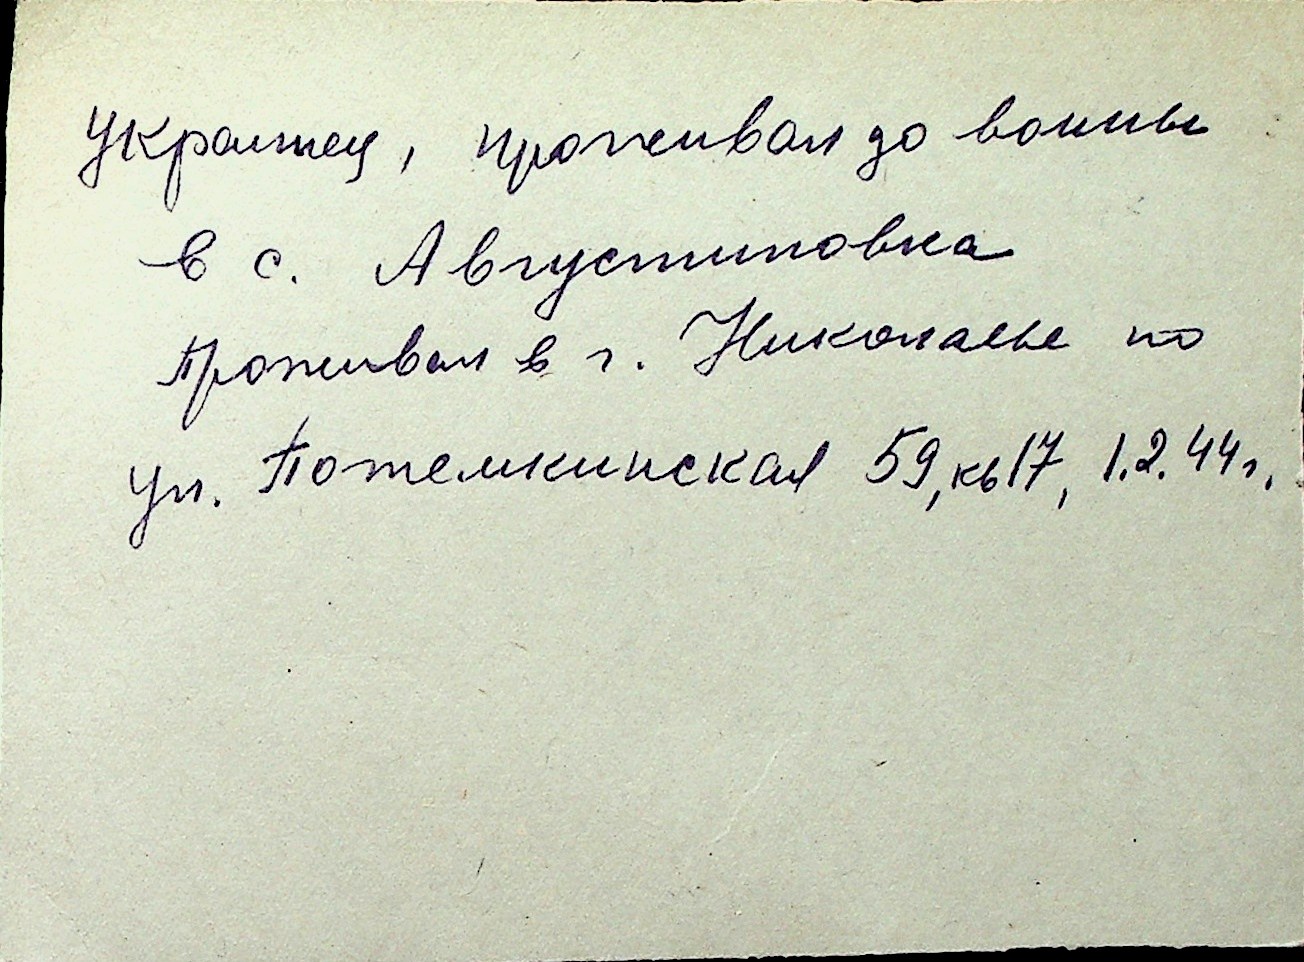 Украинец, проживал до войны
в с. Августиновка
Проживал в г. Николаеве по
ул. Потемкинская 59, кв 17, 1.2.44 г.